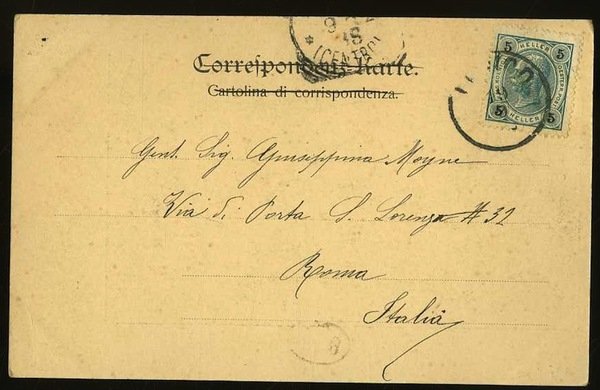 Correspondenz-Karte.
Cartolina di corrispondenza.
(CENTRO)
5 HELLER 5
5 HELLER 5
Gent. Sig. Giuseppina Moyne
Via di Porta S. Lorenzo # 32
Roma
Italia